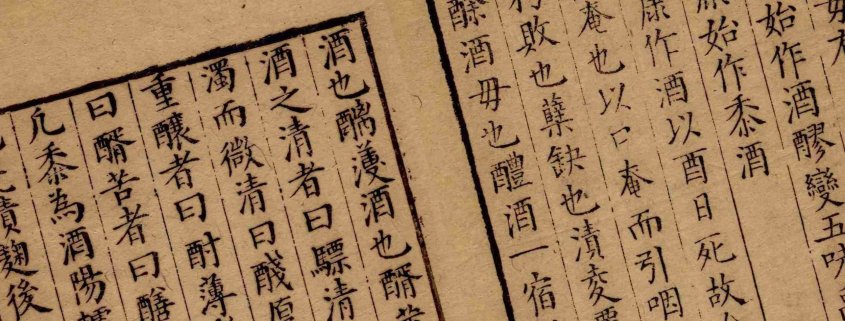 始作酒醪變五味
始作黍酒
康作酒以酉日死故
奄也以口奄而引咽
敗也蘖缺也漬
酒毋也醴酒一宿
酒也醨薄酒也醑
酒之清者曰驃清
濁而微清曰醆厚
重釀者曰酎薄
曰醑苦者曰
凡黍為酒陽
漬麴後